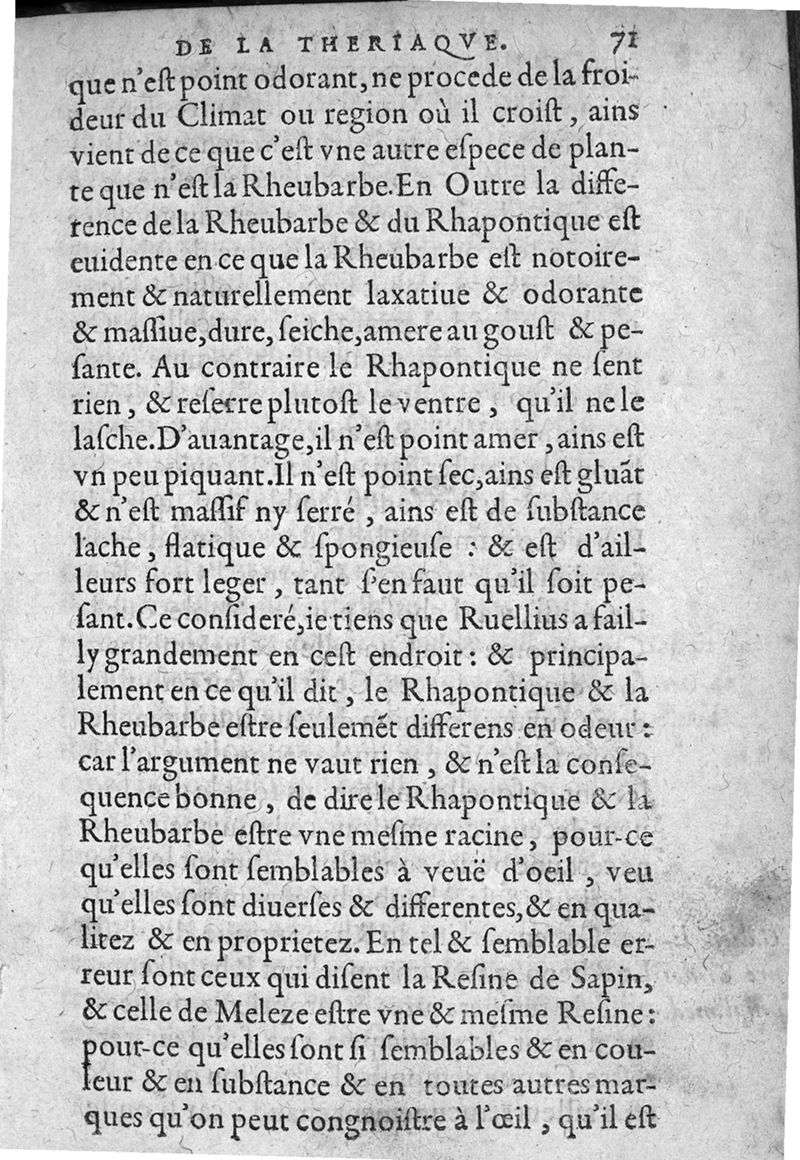 DE LA THERIAQVE. 71
que n'eſt point odorant, ne procede de la froi-
deur du Climat ou region où il croiſt, ains
vient de ce que c'eſt vne autre eſpece de plan-
te que n'eſt la Rheubarbe. En Outre la diffe-
rence de la Rheubarbe & du Rhapontique eſt
euidente en ce que la Rheubarbe eſt notoire-
ment & naturellement laxatiue & odorante
& maſſiue, dure, ſeiche, amere au gouſt & pe-
ſante. Au contraire le Rhapontique ne ſent
rien, & reſerre plutoſt le ventre, qu'il ne le
laſche. D'auantage, il n'eſt point amer, ains eſt
vn peu piquant. Il n'eſt point ſec, ains eſt gluãt
& n'eſt maſſif ny ſerré, ains eſt de ſubſtance
lache, flatique & ſpongieuſe : & eſt d'ail-
leurs fort leger, tant ſ'en faut qu'il ſoit pe-
ſant. Ce conſideré, ie tiens que Ruellius a fail-
ly grandement en ceſt endroit : & principa-
lement en ce qu'il dit, le Rhapontique & la
Rheubarbe eſtre ſeulemẽt differens en odeur :
car l'argument ne vaut rien, & n'eſt la conſe-
quence bonne, de dire le Rhapontique & la
Rheubarbe eſtre vne meſme racine, pour-ce
qu'elles ſont ſemblables à veuë d'oeil, veu
qu'elles ſont diuerſes & differentes, & en qua-
litez & en proprietez. En tel & ſemblable er-
reur ſont ceux qui diſent la Reſine de Sapin,
& celle de Meleze eſtre vne & meſme Reſine :
pour-ce qu'elles ſont ſi ſemblables & en cou-
leur & en ſubſtance & en toutes autres mar-
ques qu'on peut congnoiſtre à l'œil, qu'il eſt